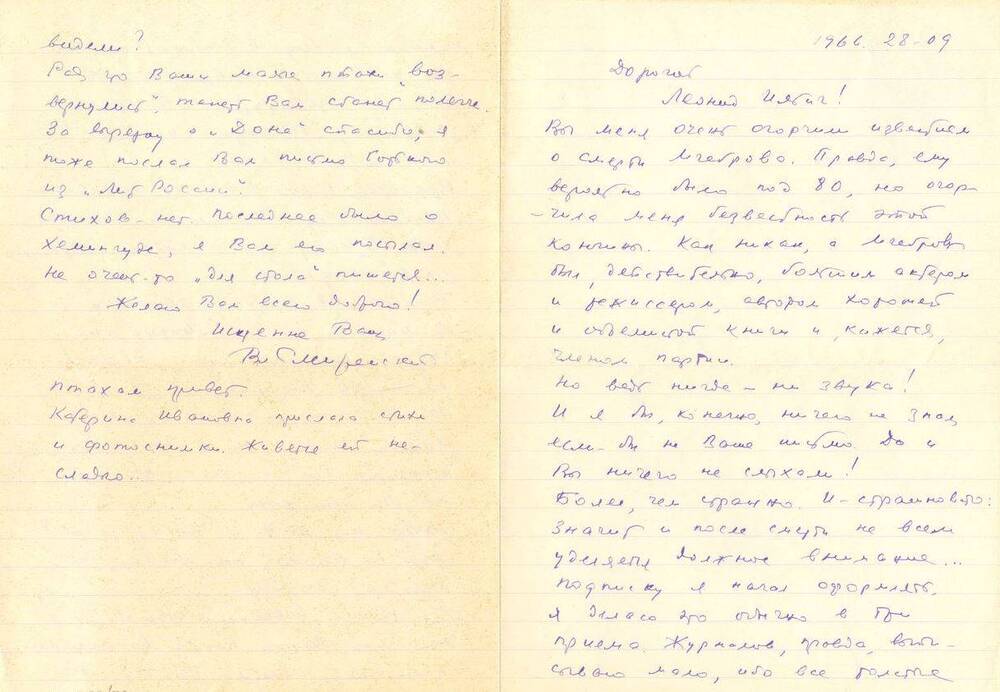 1966. 28-09
Дорогой
Леонид Ильич!
Вы меня очень огорчили известием
о смерти Мгеброва. Правда, ему
вероятно было под 80, но огор-
-чила меня безвестность этой
кончины. Как никак, а Мгебров
был, действительно, большим актером
и режиссером, автором хорошей
и
книги и, кажется,
членом партии.
Но ведь нигде – ни звука!
И я бы, конечно, ничего не знал,
если-бы не Ваше письмо. Да и
Вы ничего не слыхали!
Более, чем странно. И – страшновато:
Значит и после смерти не всем
уделяется должное внимание...
Подписку я начал оформлять.
Я делаю это обычно в три
приема. Журналов, правда, выпи-
сываю мало, ибо все толстые
видели?
Рад, что Ваши
птахи „воз-
вернулись“, теперь Вам станет полегче.
За вырезку о „Доне“ спасибо, я
тоже послал Вам письмо
из „Лит России“.
Стихов – нет. Последнее было о
Хемингуэе, я Вам его посылал.
Не очень-то „для стола“ пишется...
Желаю Вам всего доброго!
Искренне Ваш
Вл Смиренский
Птахам привет.
Катерина Ивановна прислала стихи
и фотоснимки. Живется ей не-
сладко...